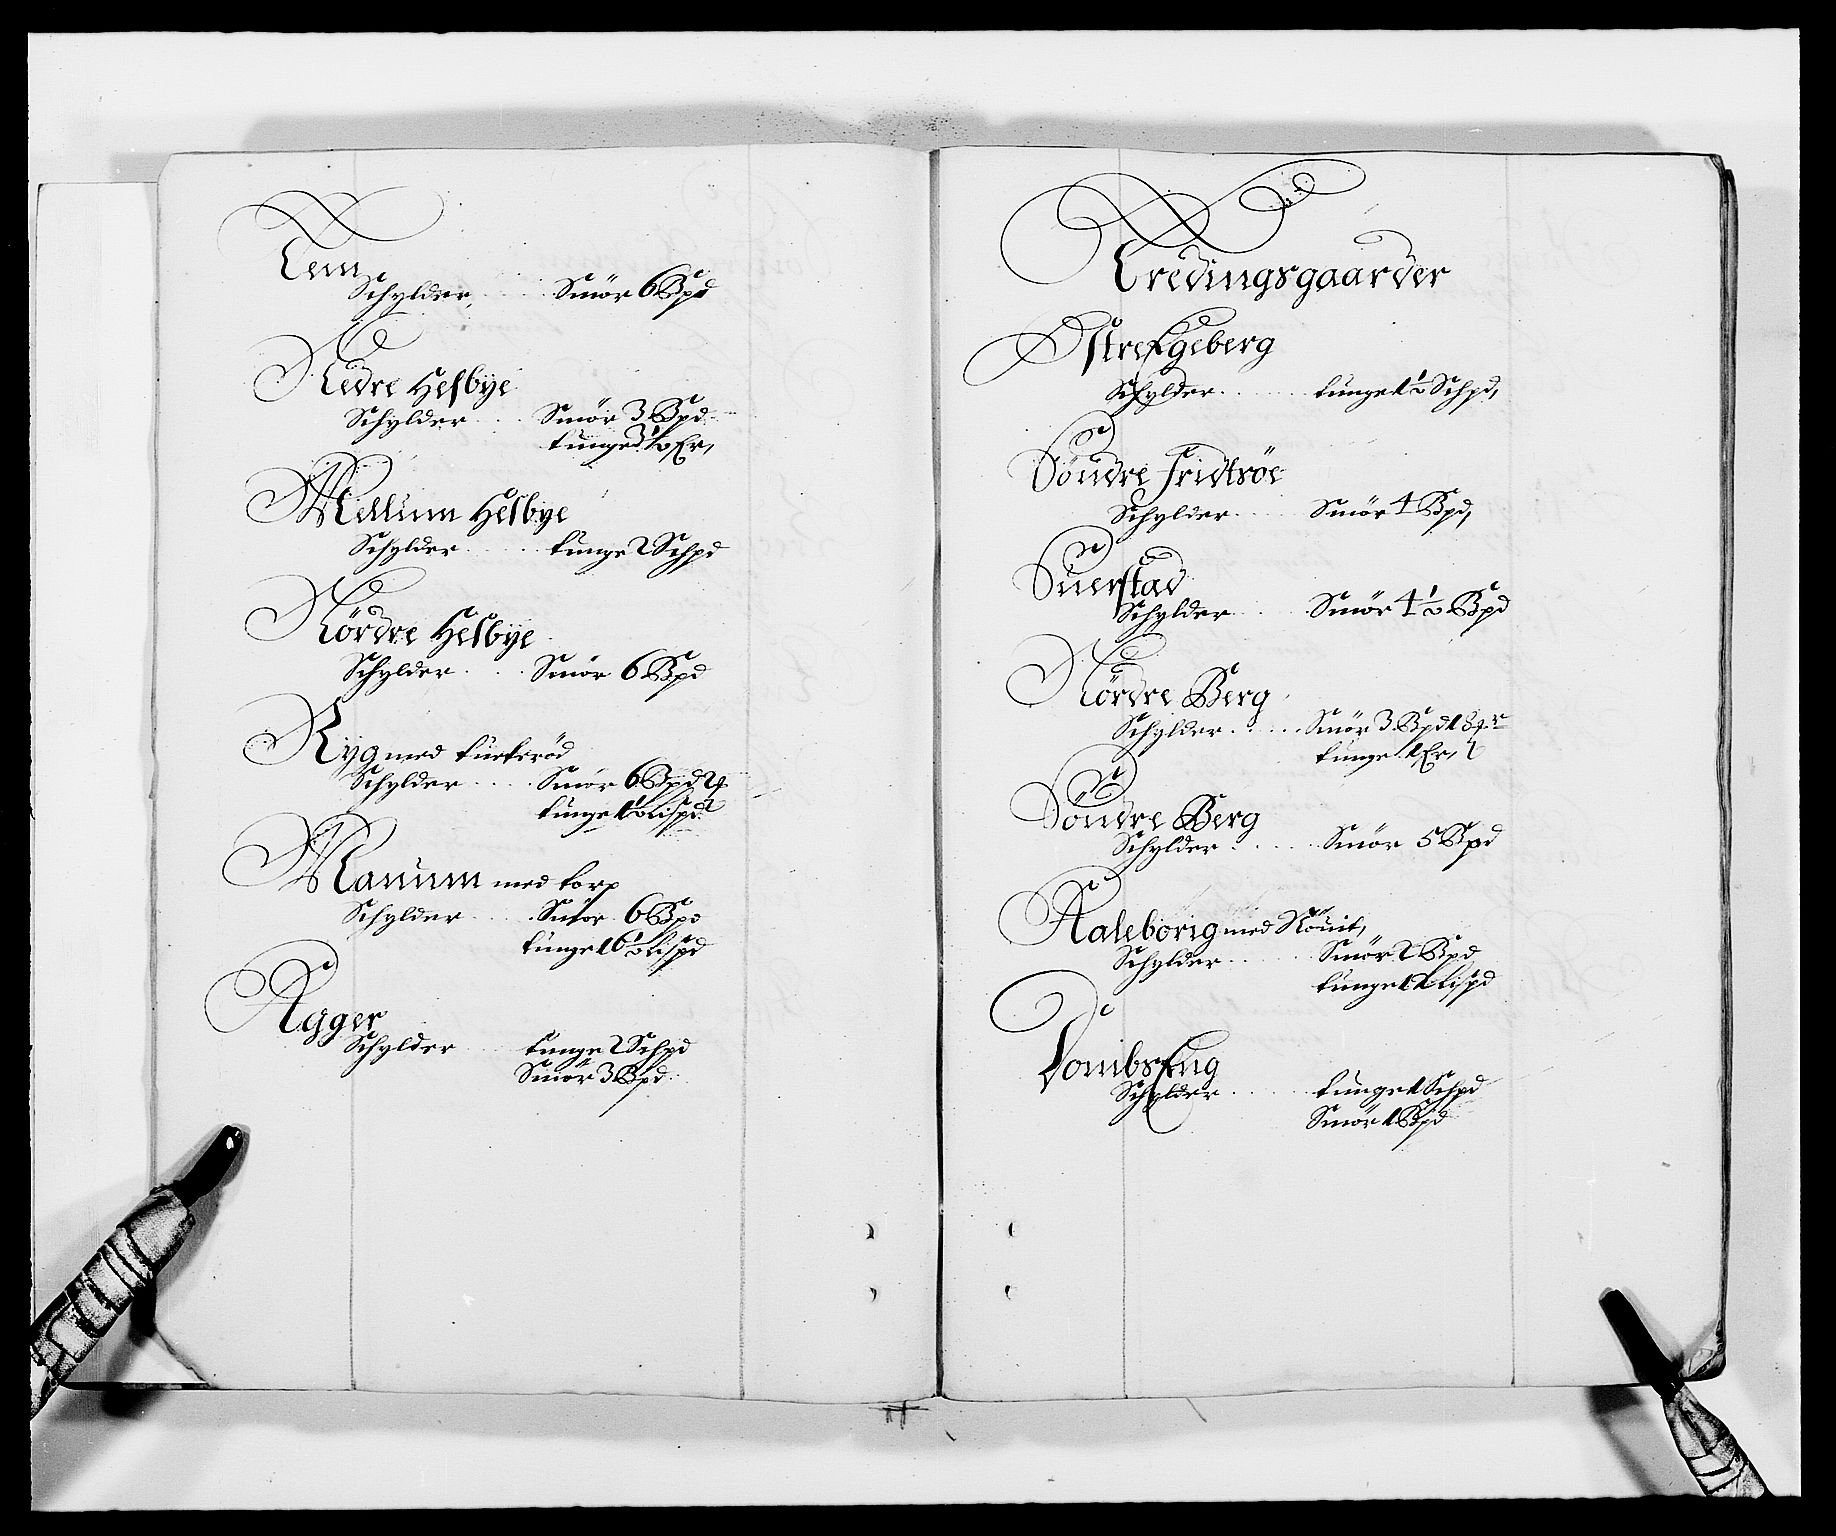 Tem
Schylder Smör 6 Bpd
Nedre Hesbÿe
Schylder Smör 3 Bpd
tunge 3½ Er,
Mellum Hesbÿe
Schylder tunge 2 Schpd
Nördre Hesbÿe
Schylder Smör 6 Bpd
Ryg med
Schylder Smör 6 Bpd
tunge 1½ Lispd
Manum med torp
Schylder Smör 6 Bpd
tunge 16½ Lispd
Agger
Schylder tunge 2 Schpd
Smör 3 Bpd
Tredingsgaarder
Østre Egeberg
Schylder tunge 1½ Schpd,
Söndre Fridtsöe
Schylder Smör 4 Bpd,
Suerstad
Schylder Smör 4½ Bpd
Nördre Berg
Schylder Smör 3 Bpd 18
tunge 1 Er,
Söndre Berg
Schylder Smör 5 Bpd
Aaleborig med
Schylder Smör 2 Bpd
tunge Lispd
Schylder tunge 1 Schpd
Smör 1 Bpd